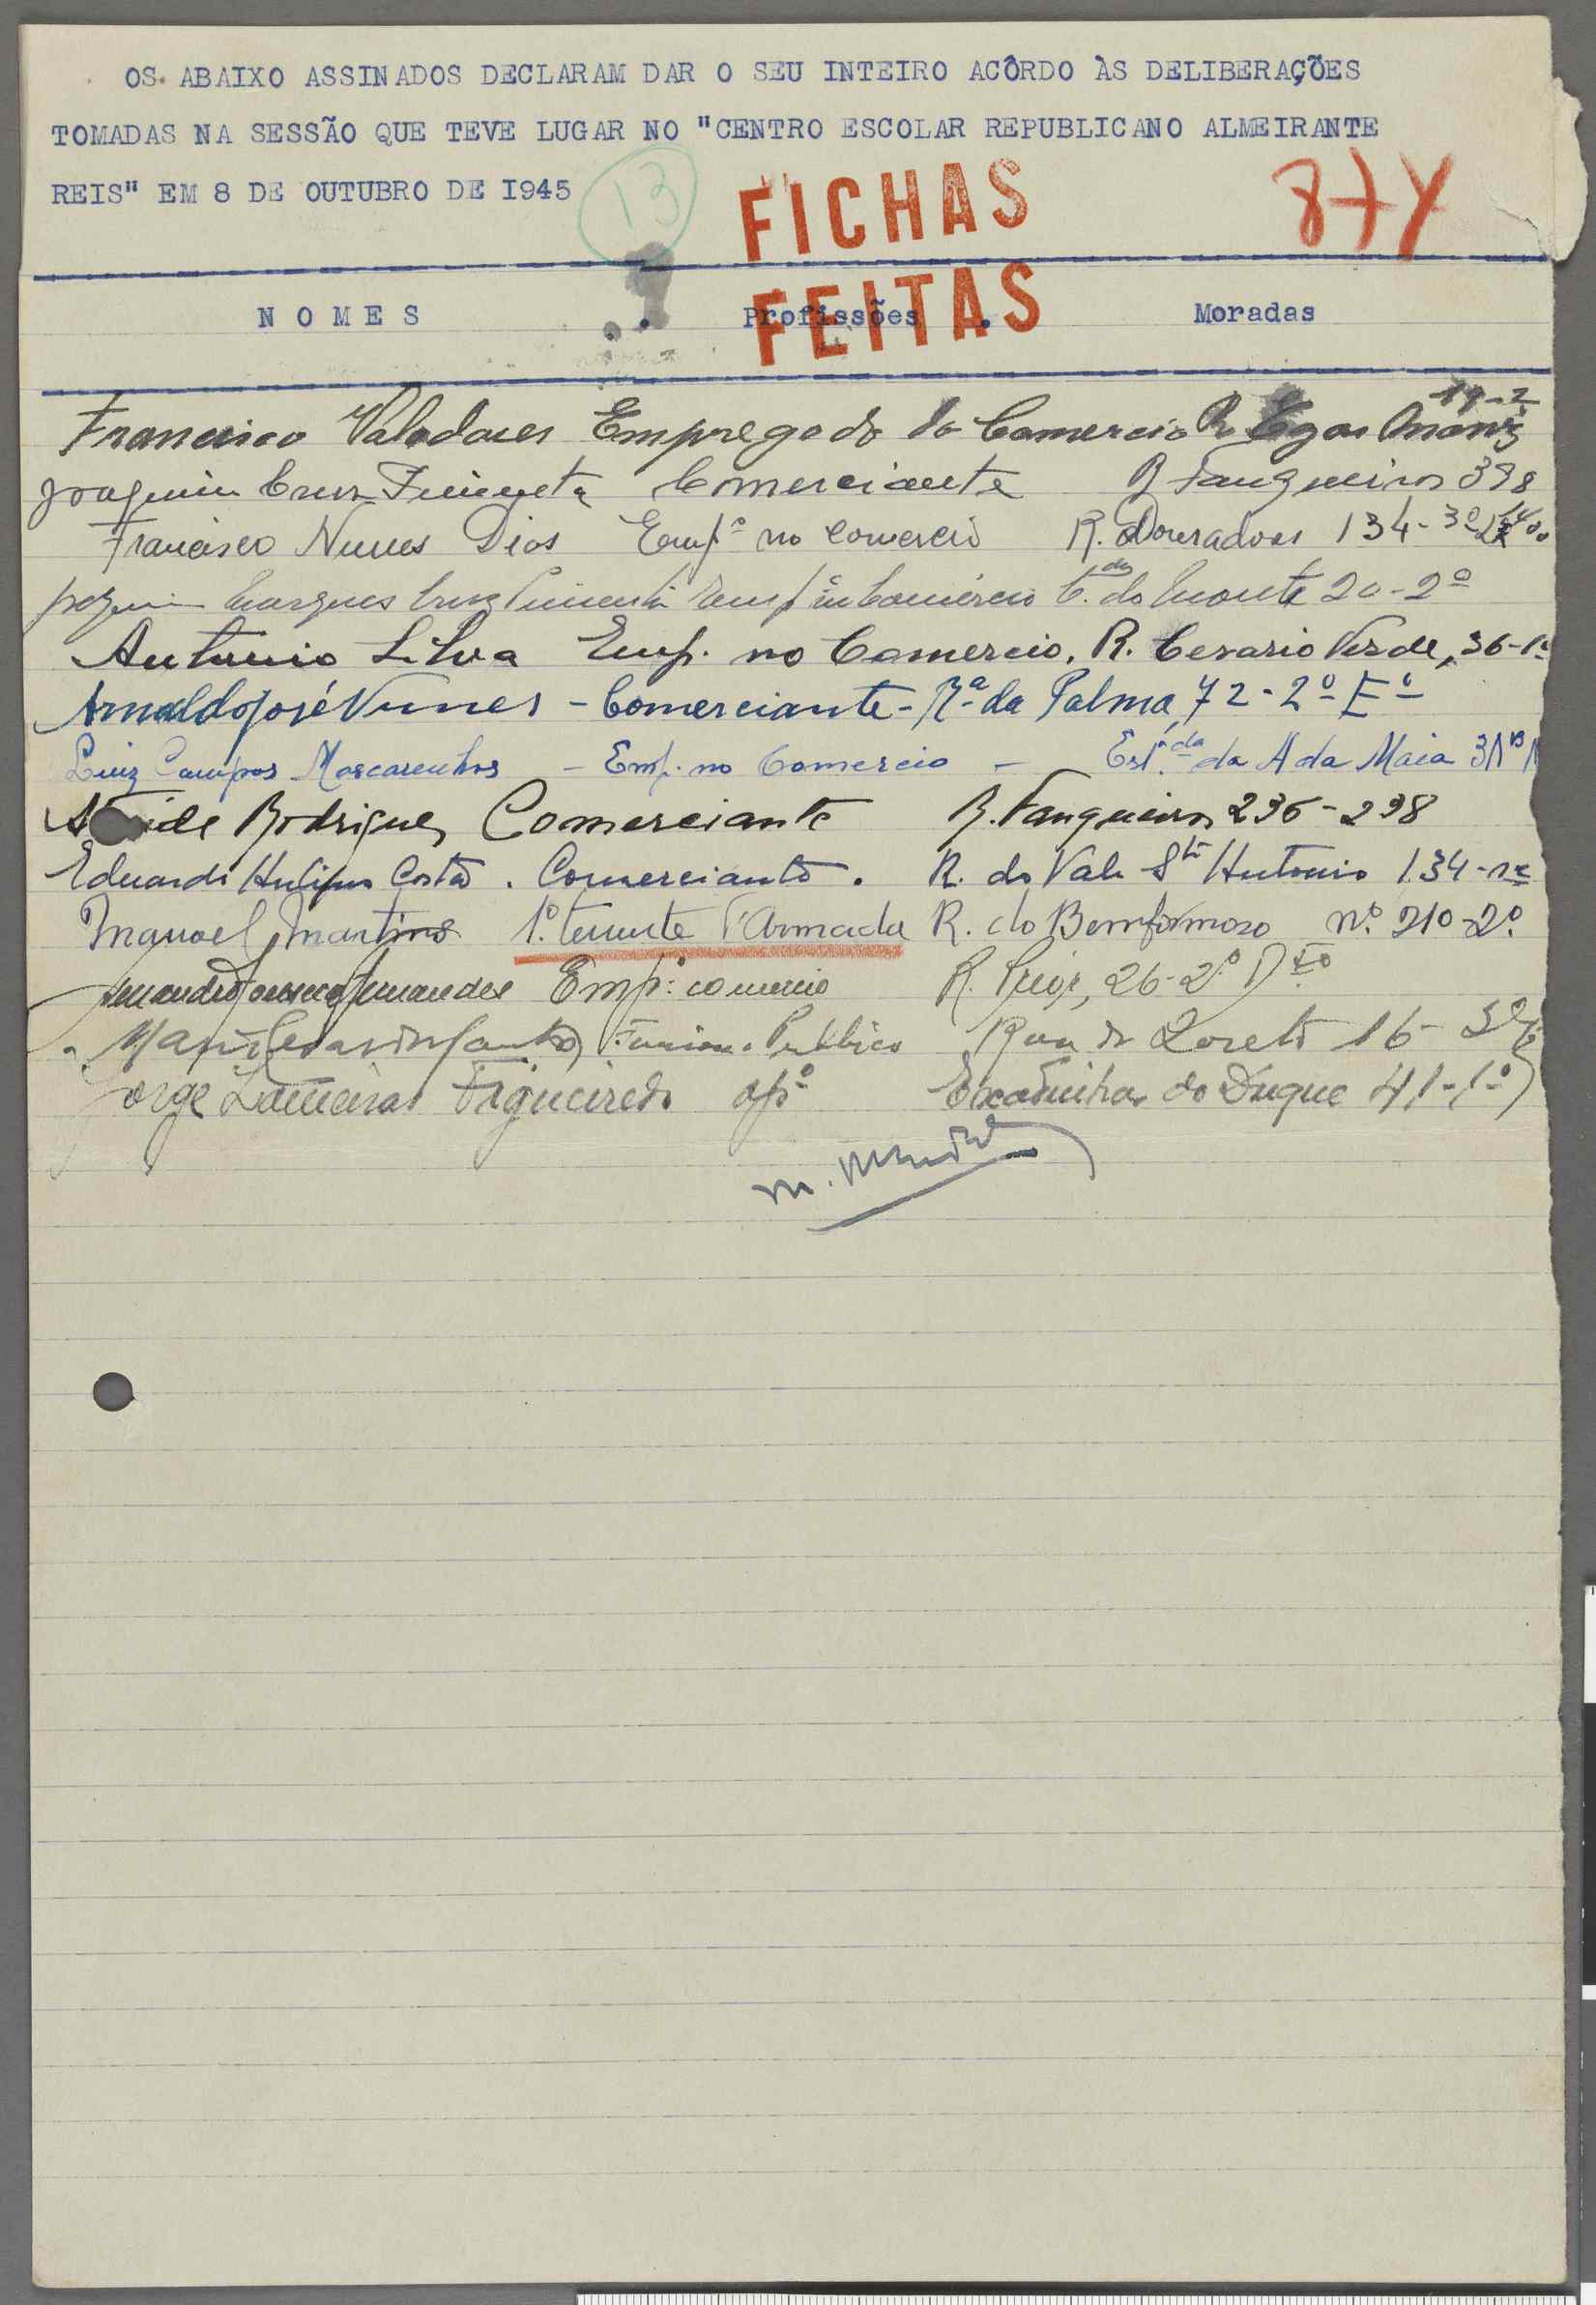 OS. ABAIXO ASSINADOS DECLARAM DAR O SEU INTEIRO ACÔRDO ÀS DELIBERAÇÕES
TOMADAS NA SESSÃO QUE TEVE LUGAR NO "CENTRO ESCOLAR REPUBLICANO ALMEIRANTE
REIS" EM 8 DE OUTUBRO DE I945
13
FICHAS
FEITAS
NOMES . Profissões . Moradas
19-2
Francisco Valadares Empregado do Comercio R. Egas Moniz
Joaquim Cruz Comerciante R Fanqueiros 398
Francisco Nunes Dias Empº no Comercio R. Douradores 134-3º
Marques Cruz Pimenta Empº Comércio do Monte 20-2º
Antonio Silva Emp. no Comercio, R. Cesario Verde, 36-1º
Arnaldo José Nunes - Comerciante - Rª da Palma, 72-2º Eº
Luiz Campos Mascarenhas - Emp. no Comercio - Estda da A da Maia
Rodrigues Comerciante R. Fanqueiros 236-238
Eduardo Costa . Comerciante . R. do Vale Stº Antonio 134
Manoel Martins 1º. tenente d'Armada R. do Bemformoso nº. 210-2º.
Fernandes Empº: comercio R. Prior, 26-2.º Dto
Funcion. Publico Rua do Loreto 16-3º
Jorge Lameiras Figueiredo opº Escadinhas do Duque 41-1º